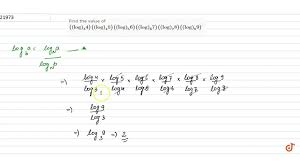 21973
Find the value of
{(log)_3 4}{(log)_4 5}{(log)_5 6}{(log)_6 7}{(log)_7 8}{(log)_8 9}
log_b a = log a / log b
⇒ log 4 / log 3 × log 5 / log 4 × log 6 / log 5 × log 7 / log 6 × log 8 / log 7 × log 9 / log 8
⇒ log 9 / log 3
⇒ log_3 9 ⇒ 2